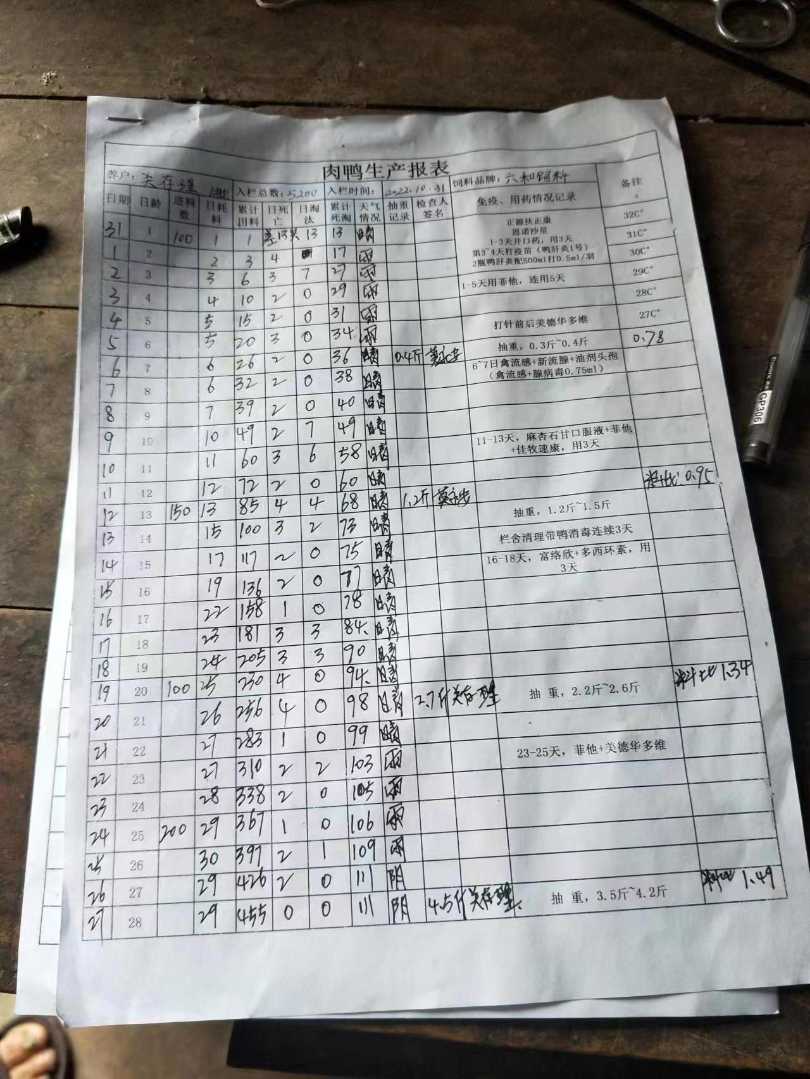 肉鸭生产报表
养户: 关存理 入栏总数: 5,200 入栏时间: 2022.10.31 饲料品牌: 六和饲料
日期 日龄 进料数 日耗料 累计用料 日死亡 日淘汰 累计死淘 天气情况 抽重记录 检查人签名 免疫、用药情况记录 备注
31 1 100 1 1 13 13 晴 正源扶正康 恩诺沙星 1-3天开口药,用3天 32C°
1 2 2 3 4 17 雨 第3~4天打疫苗(鸭肝炎1号) 2瓶鸭肝炎配500ml打0.5ml/羽 31C°
2 3 3 6 3 7 27 雨 30C°
3 4 4 10 2 0 29 雨 1-5天用菲他,连用5天 29C°
4 5 5 15 2 0 31 雨 28C°
5 6 5 20 3 0 34 雨 打针前后美德华多维 27C°
6 7 6 26 2 0 36 晴 0.4斤 抽重,0.3斤~0.4斤 0.78
7 8 6 32 2 0 38 晴 6~7日禽流感+新流腺+油剂头孢 (禽流感+腺病毒0.75ml)
8 9 7 39 2 0 40 晴
9 10 10 49 2 7 49 晴
10 11 11 60 3 6 58 晴 11-13天,麻杏石甘口服液+菲他+佳牧速康,用3天
11 12 12 72 2 0 60 晴
12 13 150 13 85 4 4 68 晴 1.2斤 抽重,1.2斤~1.5斤 料比 0.95
13 14 15 100 3 2 73 晴 栏舍清理带鸭消毒连续3天
14 15 17 117 2 0 75 晴 16-18天,富络欣+多西环素,用3天
15 16 19 136 2 0 77 晴
16 17 22 158 1 0 78 晴
17 18 23 181 3 3 84 晴
18 19 24 205 3 3 90 晴
19 20 100 25 230 4 0 94 晴
20 21 26 256 4 0 98 晴 2.7斤 关存理 抽 重,2.2斤~2.6斤 料比 1.34
21 22 27 283 1 0 99 晴
22 23 27 310 2 2 103 雨 23-25天,菲他+美德华多维
23 24 28 338 2 0 105 雨
24 25 200 29 367 1 0 106 雨
25 26 30 397 2 1 109 雨
26 27 29 426 2 0 111 阴
27 28 29 455 0 0 111 阴 4.5斤 关存理 抽 重,3.5斤~4.2斤 料比 1.49
GP306